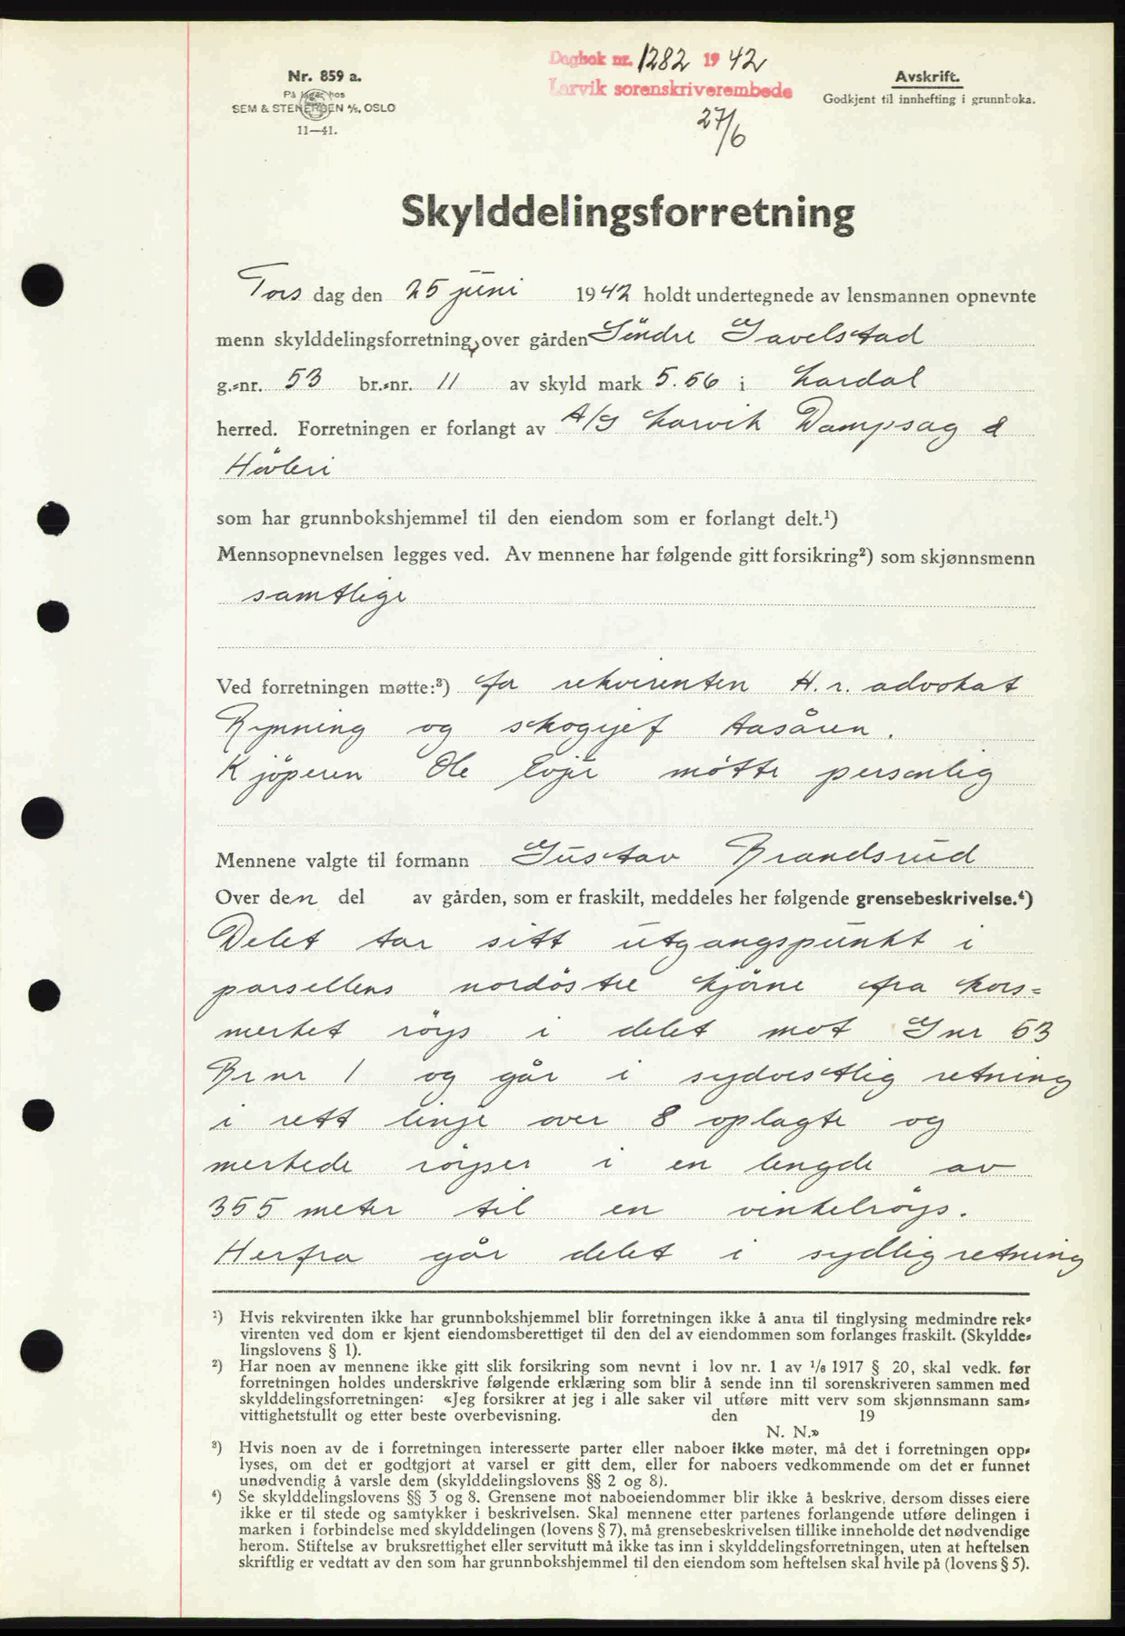 Dagbok nr. 1282 1942
Larvik sorenskriverembede
27/6
Nr. 859 a.
På lager hos
SEM & STENERSEN A/S, OSLO
11—41.
Avskrift.
Godkjent til innhefting i grunnboka.
Skylddelingsforretning
Tors dag den 25 juni 1942 holdt undertegnede av lensmannen opnevnte
menn skylddelingsforretning, over gården Söndre Gavelstad
g.-nr. 53 br.-nr. 11 av skyld mark 5.56 i Lardal
herred. Forretningen er forlangt av A/S Larvik Dampsag &
Hövleri
som har grunnbokshjemmel til den eiendom som er forlangt delt.¹)
Mennsopnevnelsen legges ved. Av mennene har følgende gitt forsikring²) som skjønnsmenn
samtlige
Ved forretningen møtte:³) for rekvirenten H. r. advokat
Rynning og skogsjef Aasåren.
Kjöperen Ole Evju mötte personlig
Mennene valgte til formann Gustav Brandsrud
Over den del av gården, som er fraskilt, meddeles her følgende grensebeskrivelse.⁴)
Delet tar sitt utgangspunkt i
parsellens nordöstre hjörne fra kors=
merket röys i delet mot Gnr 53
Brnr 1 og går i sydvestlig retning
i rett linje over 8 oplagte og
merkede röyser i en lengde av
355 meter til en vinkelröys.
Herfra går delet i sydlig retning
¹) Hvis rekvirenten ikke har grunnbokshjemmel blir forretningen ikke å anta til tinglysing medmindre rek-
virenten ved dom er kjent eiendomsberettiget til den del av eiendommen som forlanges fraskilt. (Skyldde-
lingslovens § 1).
²) Har noen av mennene ikke gitt slik forsikring som nevnt i lov nr. 1 av 1/8 1917 § 20, skal vedk. før
forretningen holdes underskrive følgende erklæring som blir å sende inn til sorenskriveren sammen med
skylddelingsforretningen: «Jeg forsikrer at jeg i alle saker vil utføre mitt verv som skjønnsmann sam-
vittighetsfullt og etter beste overbevisning. den 19
N. N.»
³) Hvis noen av de i forretningen interesserte parter eller naboer ikke møter, må det i forretningen opp-
lyses, om det er godtgjort at varsel er gitt dem, eller for naboers vedkommende om det er funnet
unødvendig å varsle dem (skylddelingslovens §§ 2 og 8).
⁴) Se skylddelingslovens §§ 3 og 8. Grensene mot naboeiendommer blir ikke å beskrive, dersom disses eiere
ikke er til stede og samtykker i beskrivelsen. Skal mennene etter partenes forlangende utføre delingen i
marken i forbindelse med skylddelingen (lovens § 7), må grensebeskrivelsen tillike inneholde det nødvendige
herom. Stiftelse av bruksrettighet eller servitutt må ikke tas inn i skylddelingsforretningen, uten at heftelsen
skriftlig er vedtatt av den som har grunnbokshjemmel til den eiendom som heftelsen skal hvile på (lovens § 5).